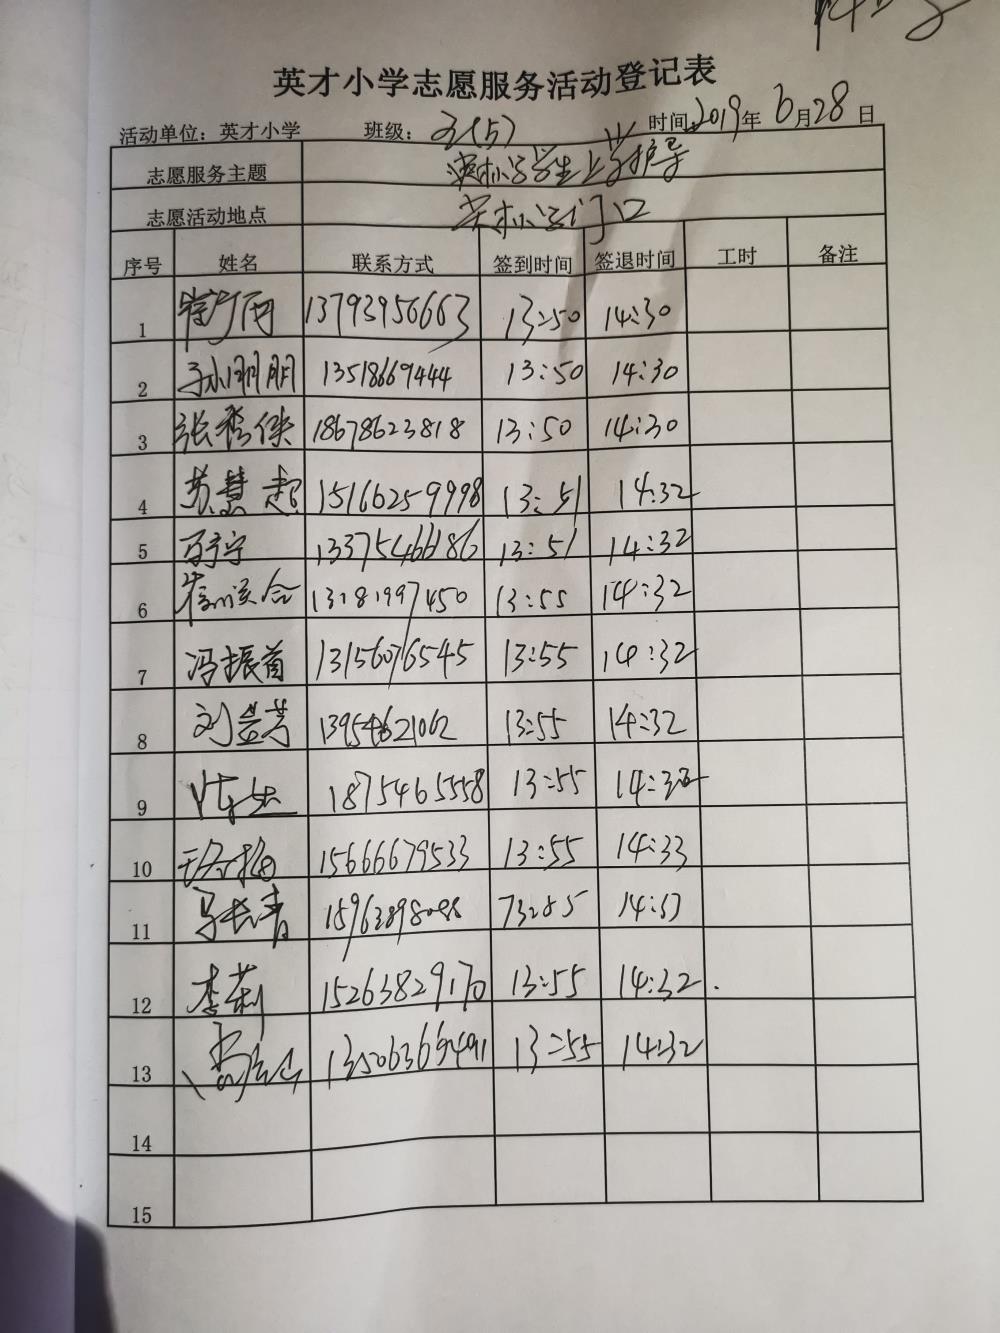 英才小学志愿服务活动登记表
活动单位：英才小学 班级： 时间:2019年6月28日
志愿服务主题 学生上学护导
志愿活动地点 英才小学门口
序号 姓名 联系方式 签到时间 签退时间 工时 备注
1 13793956663 13:50 14:30
2 孙明明 13518669444 13:50 14:30
3 张秀俠 18678623818 13:50 14:30
4 苏慧超 15166259998 13:51 14:32
5 13375466186 13:51 14:32
6 13181997450 13:55 14:32
7 冯振首 13156076545 13:55 14:32
8 刘芳 13954621062 13:55 14:32
9 18754655558 13:55
10 15666679533 13:55 14:33
11 马长青
12 李莉 15263829170 13:55 14:32
13 13:55 14:32
14
15